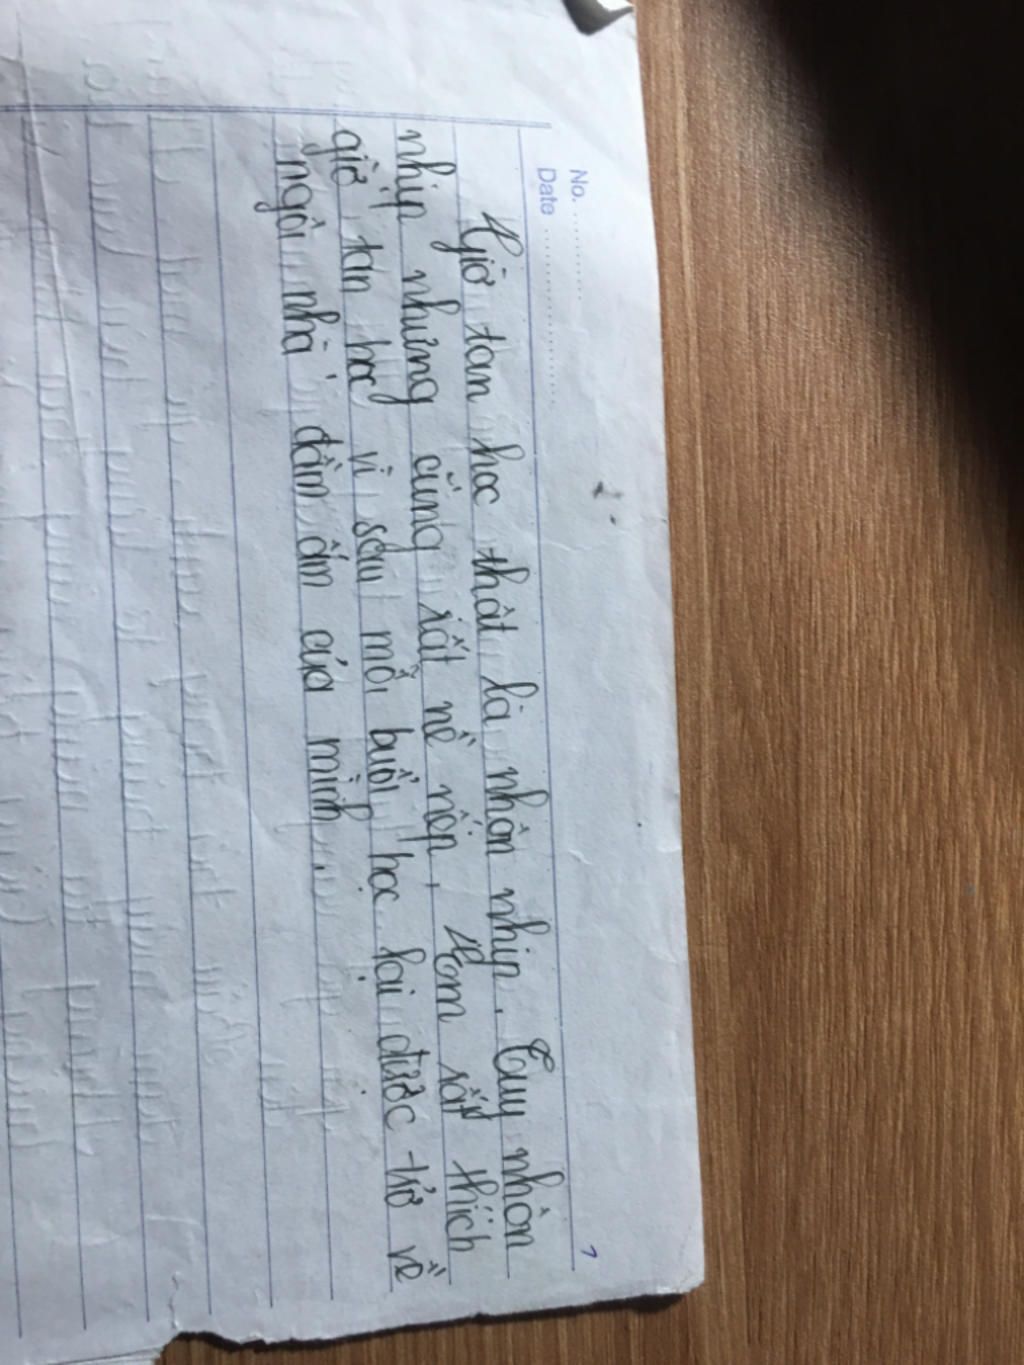 No. ............
Date ........................
7
Giờ tan học thật là nhộn nhịp. Tuy nhộn
nhịp nhưng cũng rất nề nếp. Em rất thích
giờ tan học vì sau mỗi buổi học lại được trở về
ngôi nhà đầm ấm của mình.